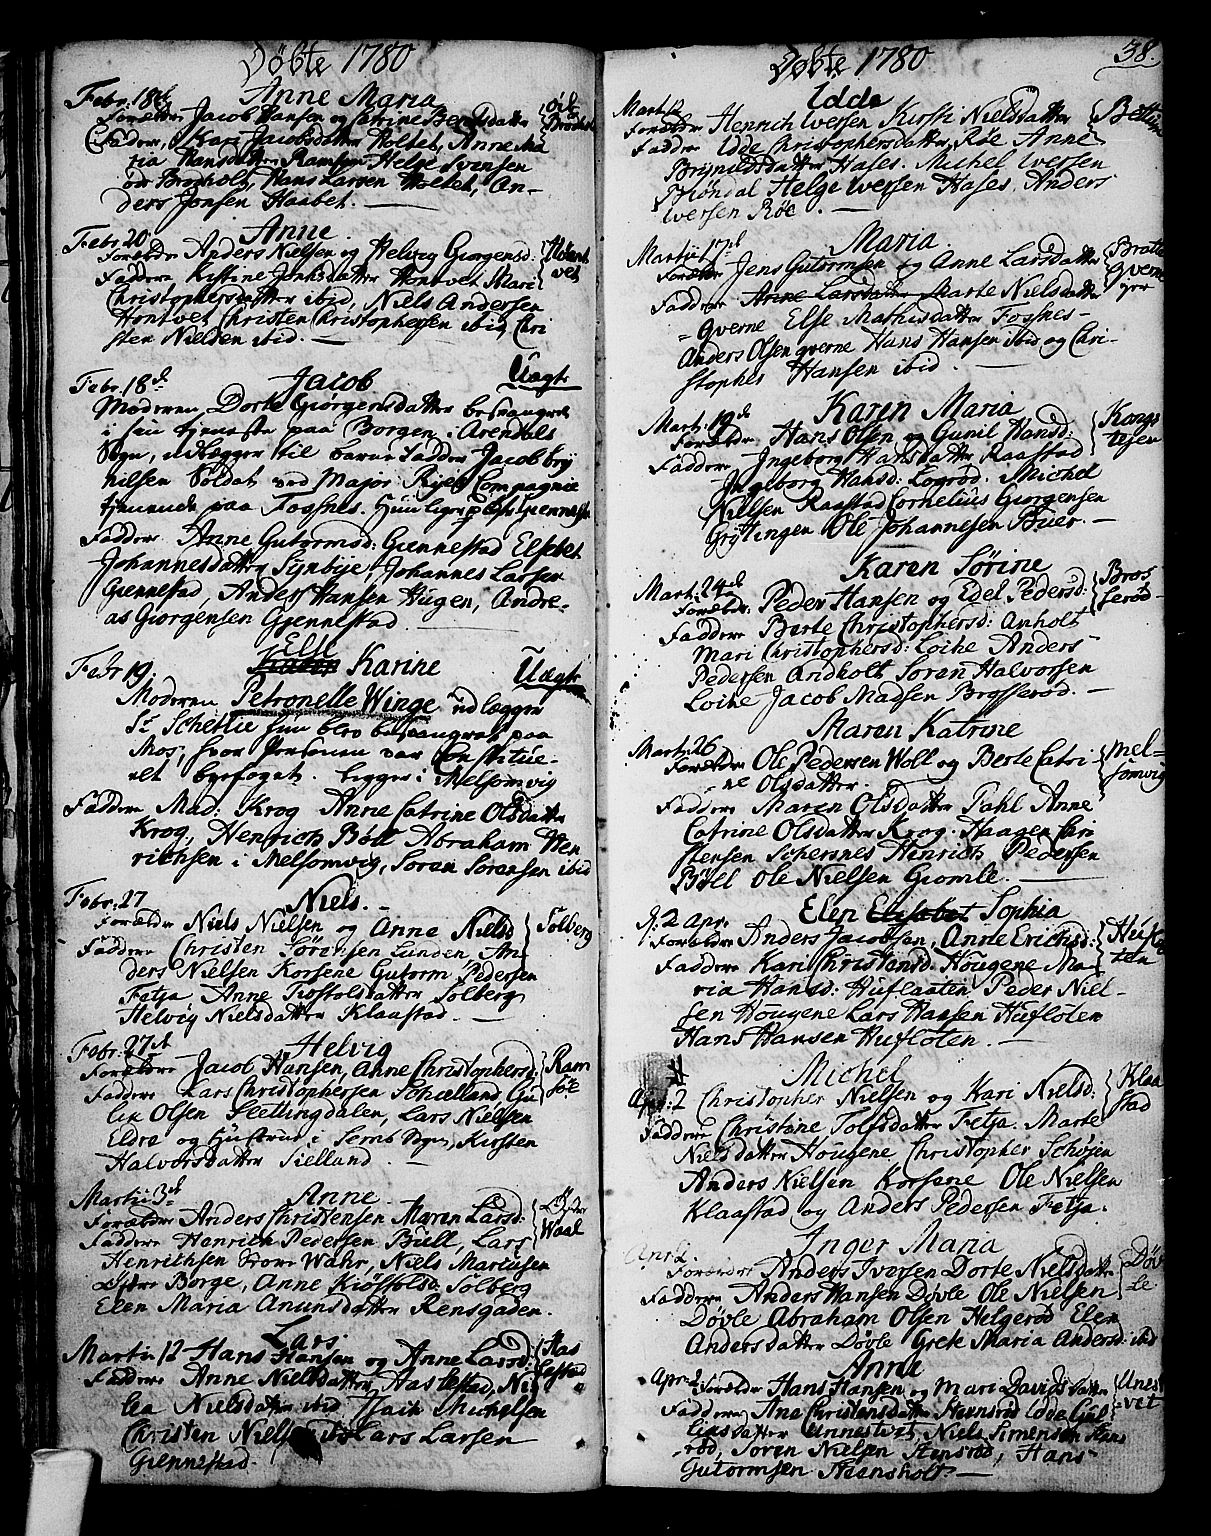 Döbte 1780
Febr: 18de Anne Maria
Forældre Jacob Hansen og Catrine Berntsdatter
Faddere, Kari Jacobsdatter Holtet, Anne Ma
ria Hansdatter Ramsöe Helge Svensen
Broeholt, Hans Larsen Holtet, An-
ders Jonsen Haabet. —
Febr. 20 Anne
Forældre Anders Nielsen og Helvig Giorgensd. Hont
vet
Faddere Kistine Jensdatter Hontvet Mari
Christophersdatter ibid, Niels Andersen
Hontvet Christen Christophersen ibid, Chri
sten Nielsen ibid. —
Febr. 18d. Jacob Uægte
Moderen Dorte Giörgensdatter besvangret
i sin tjeneste paa Borgen i Arendals
Sogn, udlægger til barne Fadder Jacob Bry
nilsen Soldat ved Major Ryes Compagnie
tjenende paa Fossnes. Hun ligger Giennestad
Faddere Anne Gutormsd: Giennestad Elsebet
Johannesdatter Synbye, Johannes Larsen
Giennestad, Anders Hansen Haugen, Andre-
as Giorgensen Gjennestad
Febr 19 Else Karine Uægte
Moderen Petronelle Winge udlægger
Sr Schettie hun blev besvangret paa
Mos, hvor Personen var Constitue-
ret byefoget. ligger i Melsomvig
Faddere Mad: Krog Anne Catrine Olsdatter
Krog, Henrich Böll Abraham Hen
richsen i Melsomvig, Soren Sorensen ibid
Febr: 27 Niels.
Forældre Niels Nielsen og Anne Nielsd Solberg
Faddere Christen Sörensen Lunden, An
ders Nielsen Korsene Gutorm Pedersen
Fetja, Anne Trostolsdatter Solberg
Helvig Nielsdatter Klaastad. —
Febr: 27d Helvig
Forældre Jacob Hansen, Anne Christophersd: Ram
söe
Faddere Lars Christophersen Schielland Gu
lik Olsen Slettingdalen, Lars Nielsen
Eldre og Hustrue i Semb Sogn, Kirsten
Halvorsdatter Sielland. —
Martii 3d Anne.
Forældre Anders Christensen Maren Larsd: Öster
Waal
Faddere Henrich Pedersen Buell, Lars
Henrichsen Wahr, Niels Martusen
Östre Borge, Anne Kiöstolsd: Solberg
Elen Maria Amunsdatter Rensgaden.
Lars.
Martii 12 Hans Hansen og Anne Larsd: Has
lestad
Faddere Anne Nielsdatter Haslestad, Nil
lea Nielsdatter ibid Isaik Michelsen
Christen Nielsen Lars Larsen
Giennestad.
Döbte 1780 38.
Idde
Mart: 12
Forældre Henrich Iversen Kirsti Nielsdatter Bettum
Faddere Idde Christophersdatter Röe Anne
Brynildsdatter Hases. Michel Iversen
Miöndal Helge Iversen Hases. Anders
Iversen Röe. —
Martij 17d Maria.
Forældre Jens Gutormsen og Anne Larsdatter Bratte
qverne
Faddere Anne Larsdatter Marte Nielsdatter
qverne Else Mathisdatter Fossnes-
Anders Olsen qverne Hans Hansen ibid og Chri-
stopher Hansen ibid. —
Mart: 19de Karen Maria
Forældre Hans Olsen og Gunil Hansd: Kongs
tejen
Faddere Ingeborg Hansdatter Raastad
Ingeborg Hansd: Logröd. Michel
Nielsen Raastad Cornelius Giorgensen
Gryttingen Ole Johannesen Buer. —
Karen Sörine
Mart: 24de
Forældre Peder Hansen og Edel Pedersd: Bros
serød
Faddere Berte Christophersd: Anholt
Mari Christophersd: Loike Anders
Pedersen Andholt Soren Halvorsen
Loike Jacob Madsen Brosseröd. —
Maren Katrine
Mart: 26
Forældre Ole Pedersen Woll og Berte Catri- Mel-
somvig
ne Olsdatter.
Faddere Maren Olsdatter Dahl Anne
Catrine Olsdatter Krog. Haagen Chri
stensen Schersnes Henrich Pedersen
Böell Ole Nielsen Giomle. —
d: 2 Apr. Elen Elisabet Sophia
Forældre Anders Jacobsen, Anne Erichsd: Husl
öten
Faddere Kari Christensd. Hougene Ma-
ria Hansd: Huslaaten Peder Niel-
sen Hougene Lars Hansen Huslöten
Hans Hansen Huslöten. —
Michel
Apr: 2 Christopher Nielsen og Kari Nielsd: Klaa
stad
Faddere Christene Tolfsdatter Fetja. Marte
Nielsdatter Hougene. Christopher Schöjen
Anders Nielsen Korsene Ole Nielsen
Klaastad og Anders Pedersen Fetja.
Apr 2. Inger Maria
Forældre Anders Iversen Dorte Nielsdatter Döv
le
Faddere Anders Hansen Dövle Ole Nielsen
Dövle Abraham Olsen Helgeröd Elen
Andersdatter Dövle Grete Maria Andersd: ibid
Anne
Apr: 2 Forældre Hans Hansen og Mari Davidsdatter Unes
vet
Faddere Ane Christensdatter Hensröd Idde Gul
liksdatter Unnestvet, Niels Simensen Hens
röd, Soren Nielsen Hensröd, Hans
Gutormsen Steensholt —